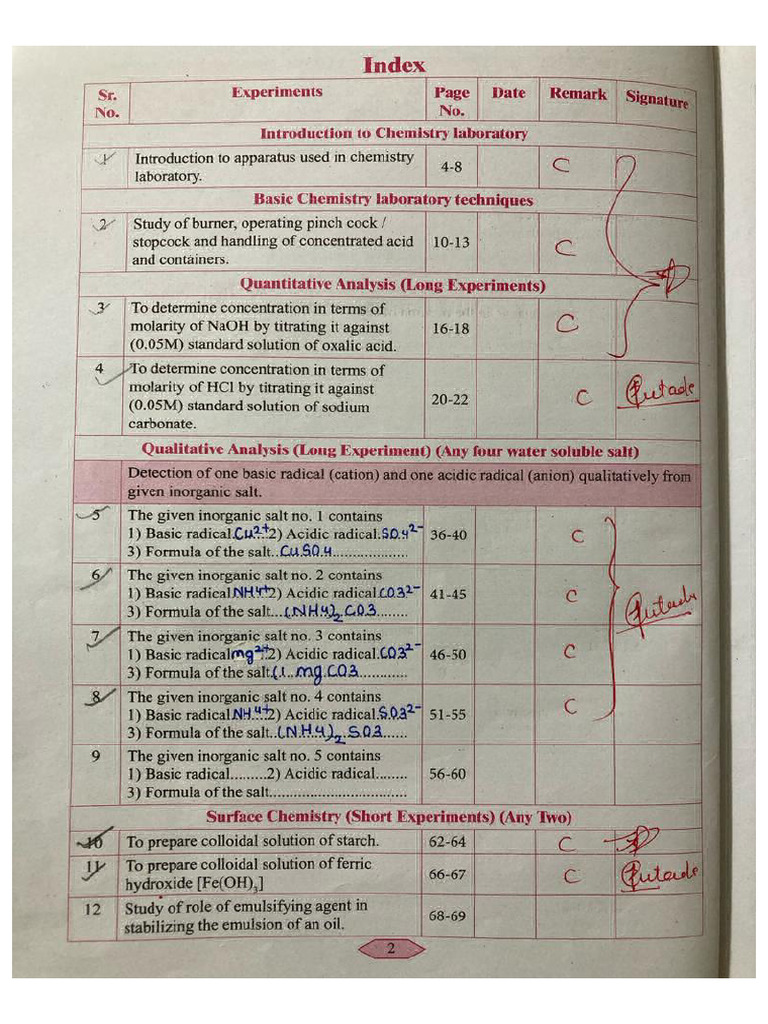 Index
Sr. No. Experiments Page No. Date Remark Signature
Introduction to Chemistry laboratory
1 Introduction to apparatus used in chemistry
laboratory. 4-8 C
Basic Chemistry laboratory techniques
2 Study of burner, operating pinch cock /
stopcock and handling of concentrated acid 10-13 C
and containers.
Quantitative Analysis (Long Experiments)
3 To determine concentration in terms of
molarity of NaOH by titrating it against 16-18 C
(0.05M) standard solution of oxalic acid.
4 To determine concentration in terms of
molarity of HCl by titrating it against
(0.05M) standard solution of sodium 20-22 C
carbonate.
Qualitative Analysis (Long Experiment) (Any four water soluble salt)
Detection of one basic radical (cation) and one acidic radical (anion) qualitatively from
given inorganic salt.
5 The given inorganic salt no. 1 contains
1) Basic radical.Cu2+.2) Acidic radical.SO42- 36-40 C
3) Formula of the salt..CuSO4...................
6 The given inorganic salt no. 2 contains
1) Basic radical.NH4+.2) Acidic radical.CO32- 41-45 C
3) Formula of the salt...(NH4)2CO3........
7 The given inorganic salt no. 3 contains
1) Basic radical.mg2+.2) Acidic radical.CO32- 46-50 C
3) Formula of the salt...mgCO3.............
8 The given inorganic salt no. 4 contains
1) Basic radical.NH4+..2) Acidic radical.SO32- 51-55 C
3) Formula of the salt..(NH4)2SO3......
9 The given inorganic salt no. 5 contains
1) Basic radical.........2) Acidic radical........ 56-60
3) Formula of the salt...................................
Surface Chemistry (Short Experiments) (Any Two)
10 To prepare colloidal solution of starch. 62-64 C
11 To prepare colloidal solution of ferric
hydroxide [Fe(OH)3] 66-67 C
12 Study of role of emulsifying agent in
stabilizing the emulsion of an oil. 68-69
2